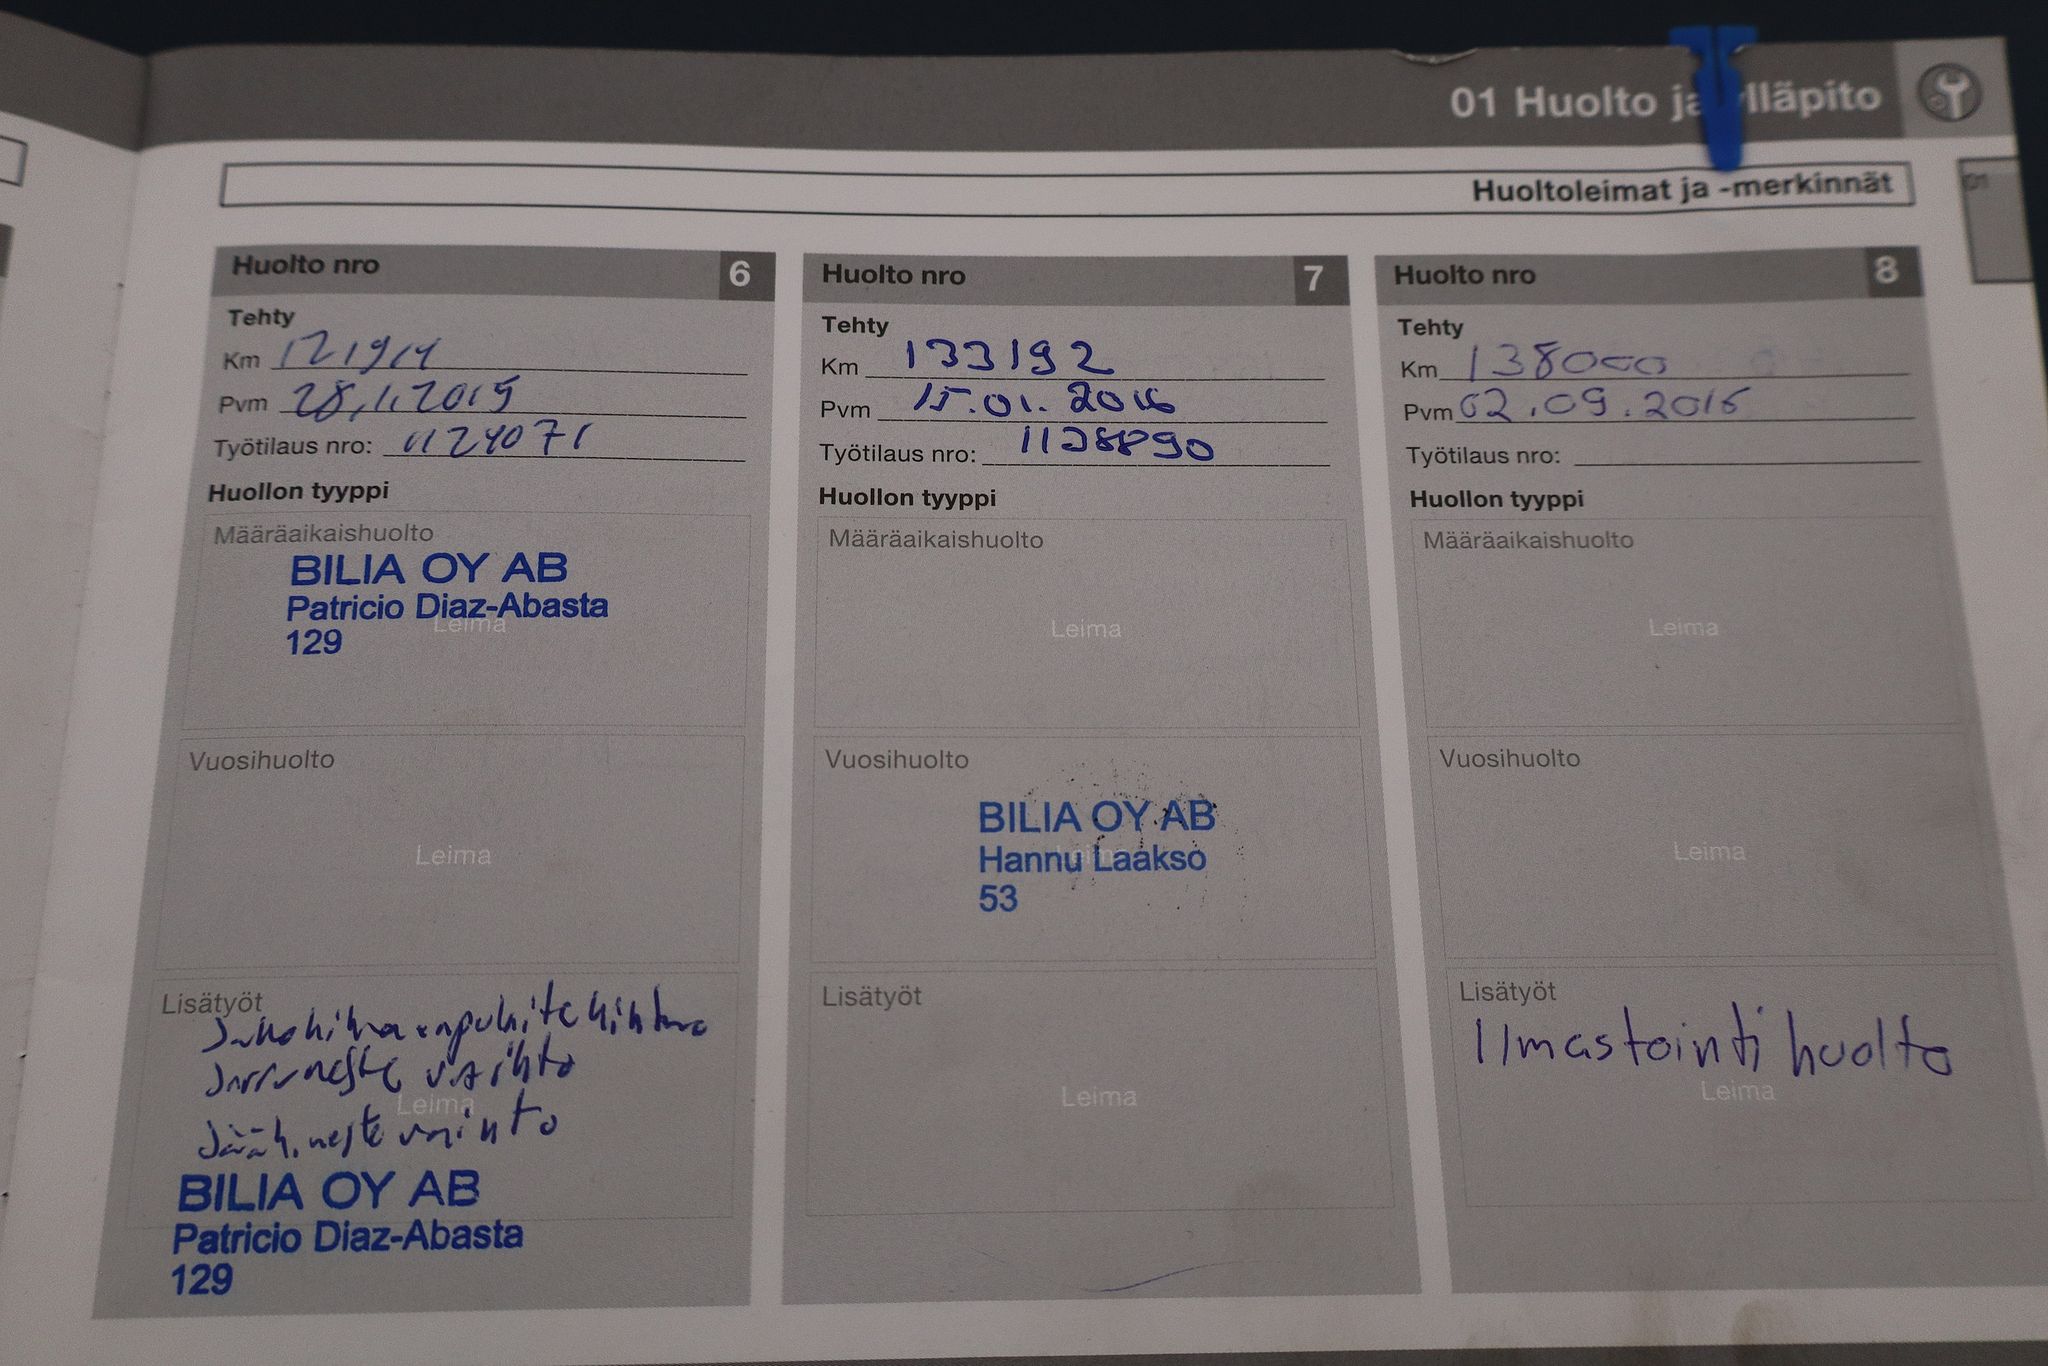 01 Huolto ja ylläpito
Huoltoleimat ja -merkinnät
01
Huolto nro 6
Tehty
Km 121914
Pvm 28.1.2015
Työtilaus nro: 1124071
Huollon tyyppi
Määräaikaishuolto
BILIA OY AB
Patricio Diaz-Abasta
Leima
129
Vuosihuolto
Leima
Lisätyöt
Jarruneste vaihto
Leima
Jääh.neste vaihto
BILIA OY AB
Patricio Diaz-Abasta
129
Huolto nro 7
Tehty
Km 133192
Pvm 15.01.2016
Työtilaus nro:
Huollon tyyppi
Määräaikaishuolto
Leima
Vuosihuolto
BILIA OY AB
Hannu Laakso
Leima
53
Lisätyöt
Leima
Huolto nro 8
Tehty
Km 138000
Pvm 02.09.2016
Työtilaus nro:
Huollon tyyppi
Määräaikaishuolto
Leima
Vuosihuolto
Leima
Lisätyöt
Ilmastointi huolto
Leima